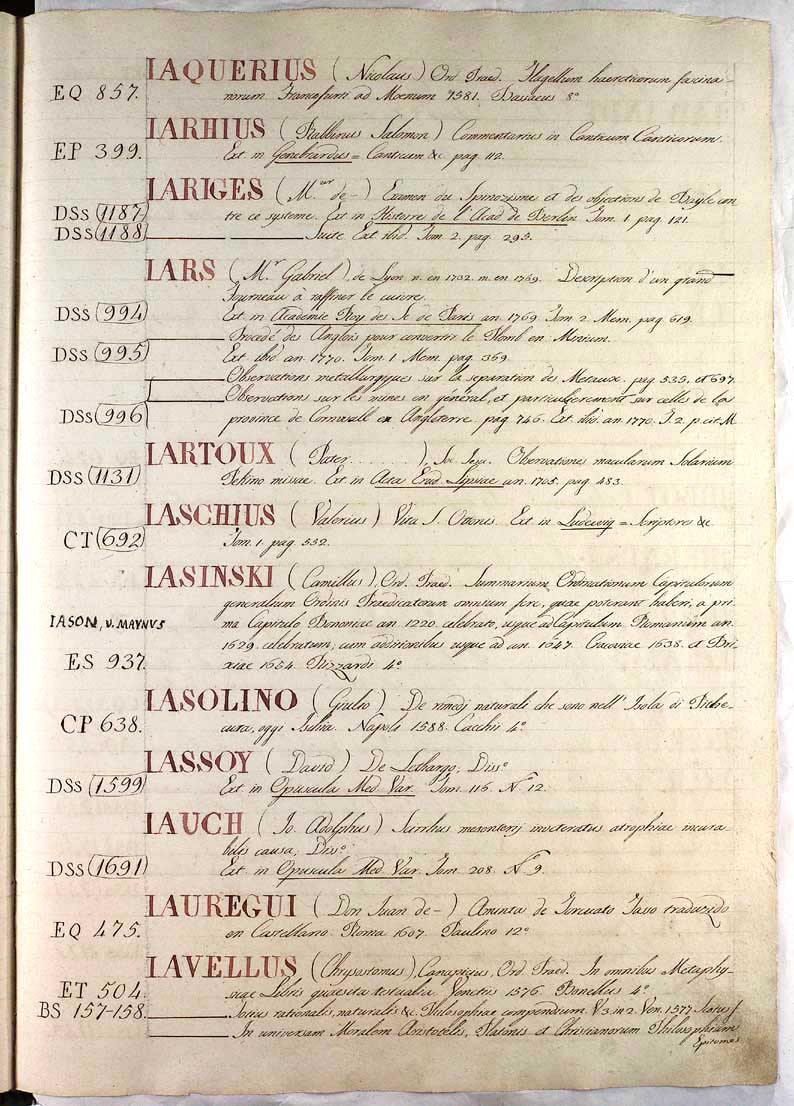 IAQUERIUS (Nicolaus) Ord. Praed. Flagellum haereticorum fascina-
EQ 857. riorum. Francofurti ad Moenum 1581. Bassaeus 8°
IARHIUS (Rabbinus Salomon) Commentarius in Canticum Canticorum.
EP 399. Ext. in Genebrardus = Canticum &c. pag. 112.
IARIGES (M.eur de-) Examen du Spinozisme et des objections de Bayle con
DSs (1187) tre ce systeme. Ext in Histoire de l'Acad. de Berlin Tom. 1 pag. 121.
DSs (1188) Suite Ext. ibid. Tom. 2. pag. 295.
IARS (M.r Gabriel) de Lyon n. en 1732. m. en 1769. Description d'un grand
Fourneau à raffiner le cuivre.
DSs (994) Ext. in Académie Roy. des Sc. de Paris an. 1769. Tom. 2. Mem. pag. 619.
Procédé des Anglois pour convertir le Plomb en Minium.
DSs (995) Ext. ibid. an. 1770. Tom. 1. Mem. pag. 369.
Observations metallurgiques sur la separation des Metaux. pag. 535, et 697.
Observations sur les mines en général, et particulierement sur celles de la
DSs (996) province de Cornwall en Angleterre. pag. 746. Ext. ibid. an. 1770. T. 2. p. cit. M.
IARTOUX (Pater ........), Soc. Jesu. Observationes macularum Solarium
DSs (1131) Pekino missae. Ext. in Acta Erud. Lipsiae an. 1705. pag. 483.
IASCHIUS (Valerius) Vita S. Ottonis. Ext. in Ludewig = Scriptores &c.
CT (692) Tom. 1. pag. 532.
IASINSKI (Camillus), Ord. Praed. Summarium Ordinationum Capitulorum
generalium Ordinis Praedicatorum omnium fere, quae poterant haberi, a pri
IASON, v. MAYNUS ma Capitulo Bononiae an. 1220. celebrato, usque ad Capitulum Romanum an.
1629. celebratum, cum additionibus usque ad an. 1647. Cracoviae 1638. et Bri
ES 937. xiae 1654. Rizzardi 4°
IASOLINO (Giulio) De rimedj naturali che sono nell'Isola di Pithe-
CP 638. cusa, oggi Ischia. Napoli 1588. Cacchii 4°.
IASSOY (David) De Lethargo, Diss.o
DSs (1599) Ext. in Opuscula Med. Var. Tom. 116. N.° 12.
IAUCH (Jo. Adolphus) Scirrhus mesenterij inveteratus atrophiae incura
bilis causa, Diss.o
DSs (1691) Ext. in Opuscula Med. Var. Tom. 208. N.° 9.
IAUREGUI (Don Juan de-) Aminta de Torcuato Tasso traduzido
EQ 475. en Castellano. Roma 1607. Paulino 12°
IAVELLUS (Chrysostomus), Canapicius, Ord. Praed. In omnibus Metaphy-
ET 504. sicae Libris quaesita textualia. Venetiis 1576. Bonellus 4°.
BS 157-158. Totius rationalis, naturalis &c. Philosophiae compendium. V. 3. in 2. Ven. 1577
In universam Moralem Aristotelis, Platonis et Christianorum Philosophiam
Epitomes